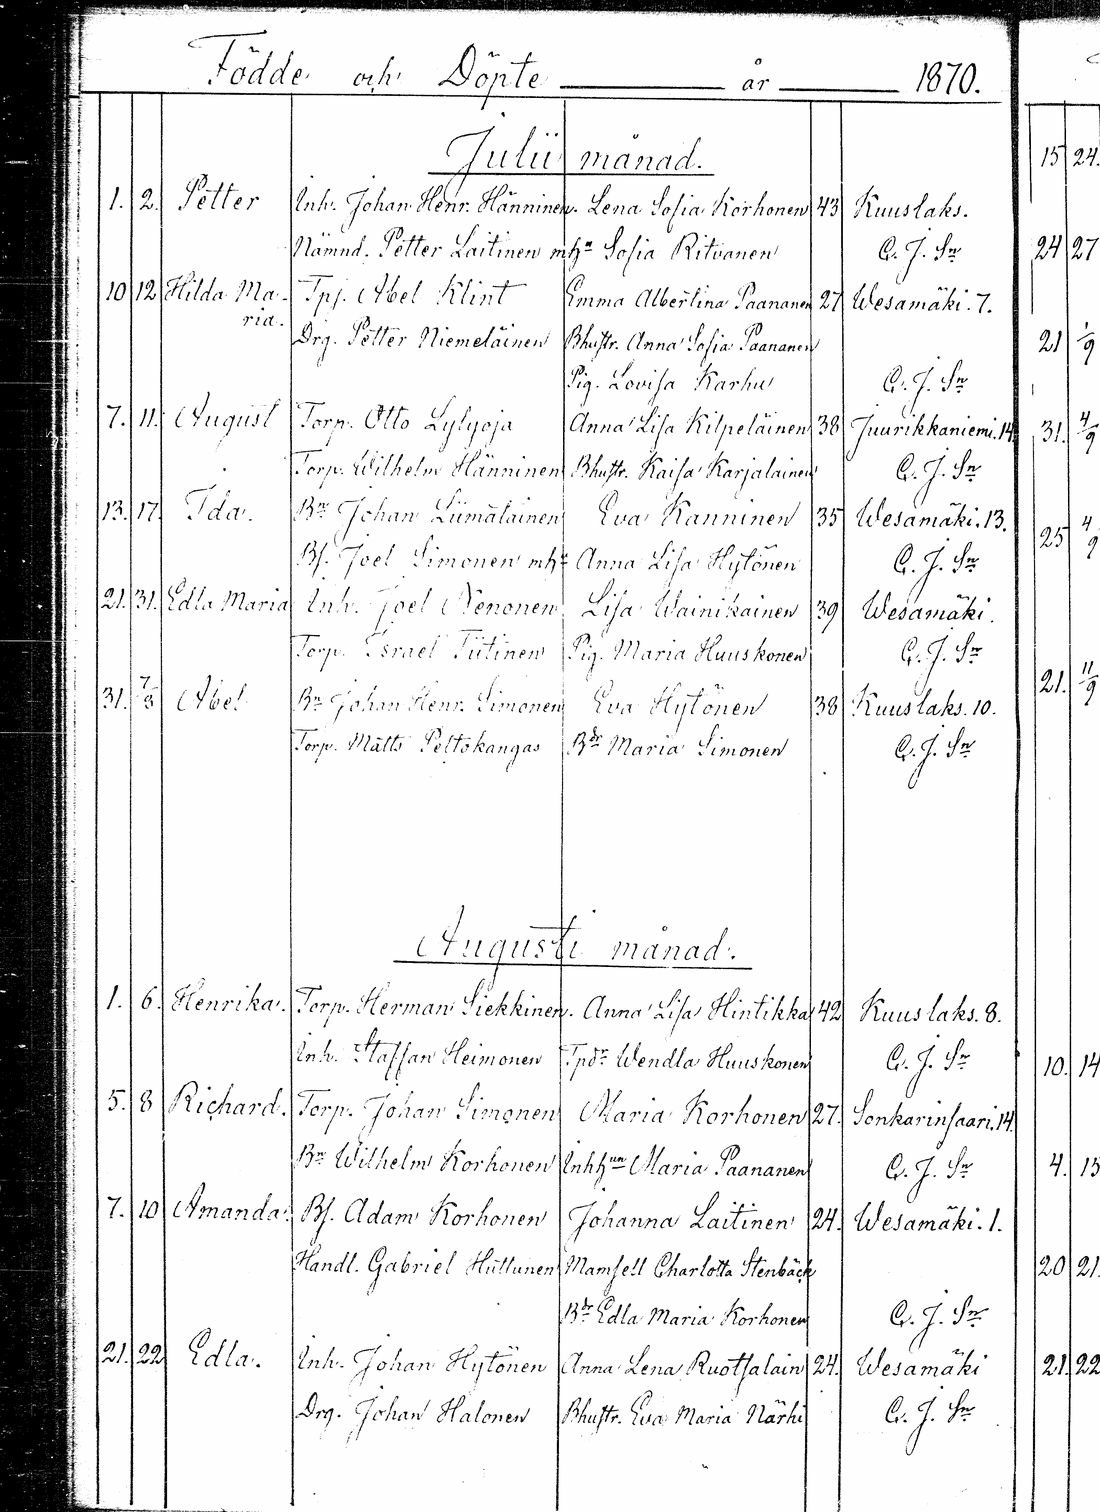 Födde och Döpte år 1870.
Julii månad.
1. 2. Petter Inh. Johan Henr. Hänninen. Lena Sofia Korhonen 43 Kuuslaks.
Nämnd. Petter Laitinen mhu Sofia Ritvanen C. J. Sn
10 12 Hilda Ma- Tpf. Abel Klint Emma Albertina Paananen 27 Wesamäki. 7.
ria.
Drg. Petter Niemeläinen Bhustr. Anna Sofia Paananen
Pig. Lovisa Karhu C. J. Sn
7. 11. August Torp. Otto Lylyoja Anna Lisa Kilpeläinen 38 Juurikkaniemi. 14
Torp. Wilhelm Hänninen Bhustr. Kaisa Karjalainen C. J. Sn
13. 17. Ida. Bn Johan Liimatainen Eva Kanninen 35 Wesamäki. 13.
Bf. Joel Simonen mhu Anna Lisa Hytönen C. J. Sn
21. 31. Edla Maria Inh. Joel Nenonen Lisa Wainikainen 39 Wesamäki.
Torp. Israel Tiitinen Pig. Maria Huuskonen C. J. Sn
31. 7/8 Abel Bn Johan Henr. Simonen Eva Hytönen 38 Kuuslaks. 10.
Torp. Matts Peltokangas Bdr Maria Simonen C. J. Sn
Augusti månad.
1. 6. Henrika. Torp. Herman Siekkinen. Anna Lisa Hintikka 42 Kuuslaks. 8.
Inh. Staffan Heimonen Tpdr Wendla Huuskonen C. J. Sn
5. 8 Richard. Torp. Johan Simonen Maria Korhonen 27. Sonkarinsaari. 14.
Bn Wilhelm Korhonen Inhhun Maria Paananen C. J. Sn
7. 10 Amanda. Bf. Adam Korhonen Johanna Laitinen 24. Wesamäki. 1.
Handl. Gabriel Huttunen Mamsell Charlotta Stenbäck
Bdr Edla Maria Korhonen C. J. Sn
21. 22 Edla. Inh. Johan Hytönen Anna Lena Ruotsalain 24. Wesamäki
Drg. Johan Halonen Bhustr. Eva Maria Närhi C. J. Sn
15 24.
24 27
21 1/9
31. 4/9
25 4/9
21. 11/9
10. 14
4. 15
20 21.
21. 22